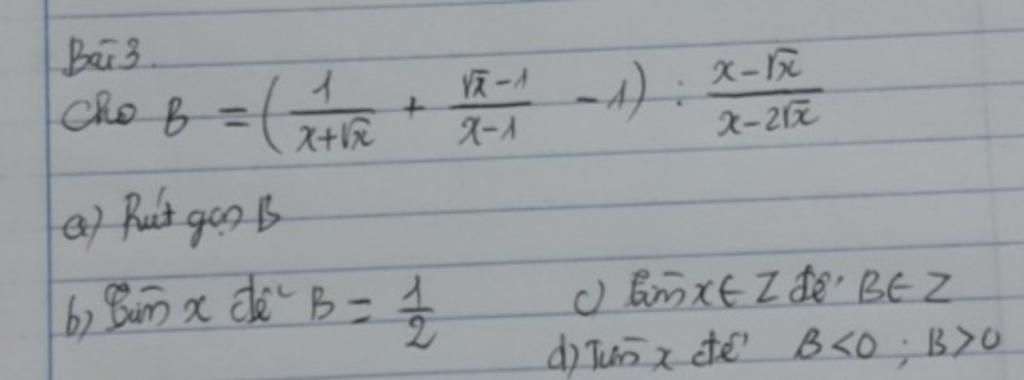 Bài 3.
Cho B = (1/(x+√x) + (√x-1)/(x-1) - 1) : (x-√x)/(x-2√x)
a) Rút gọn B
b) Tìm x để B = 1/2
c) Tìm x ∈ Z để B ∈ Z
d) Tìm x để B < 0 ; B > 0